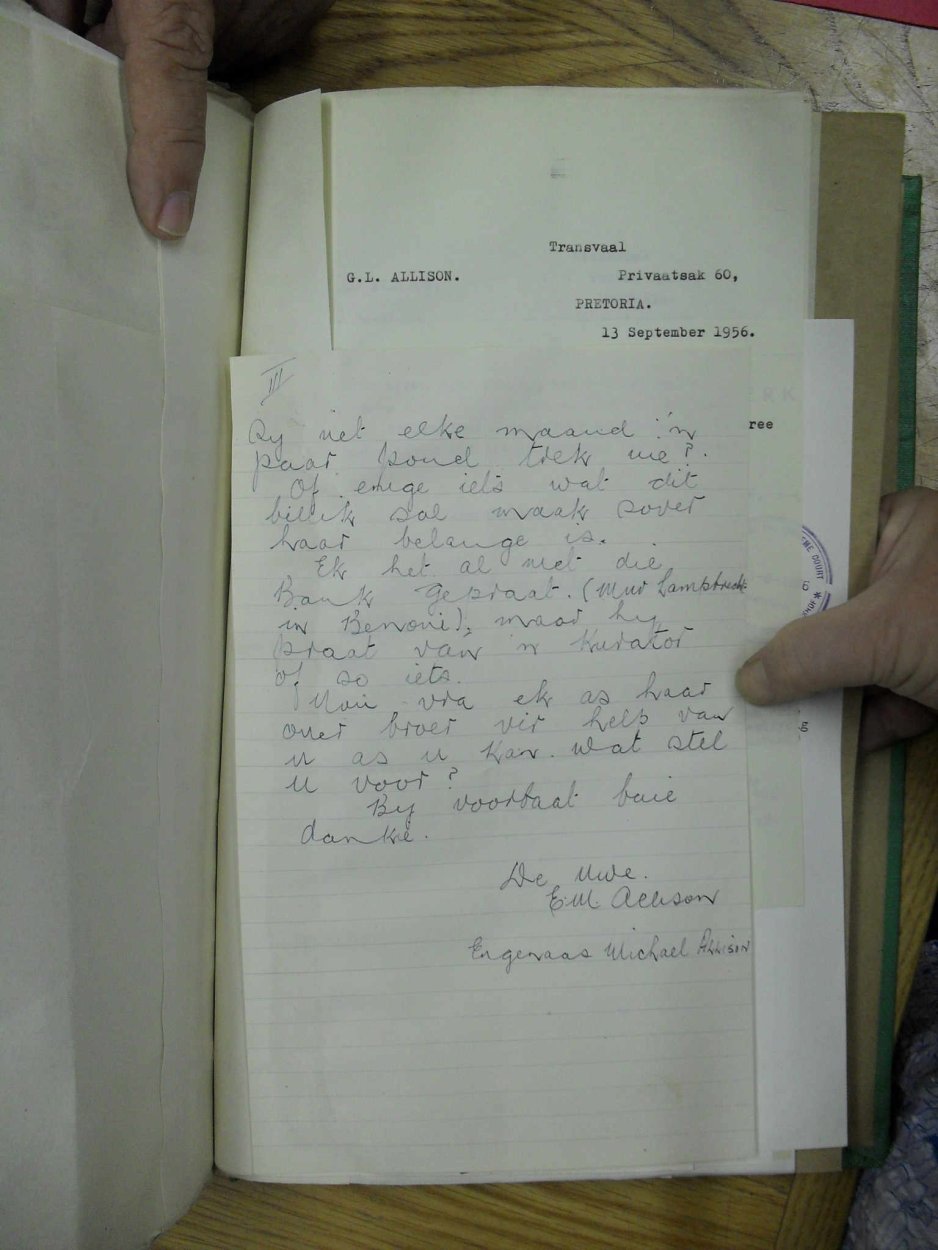 Transvaal
G.L. ALLISON.
Privaatsak 60,
PRETORIA.
13 September 1956.
ERK
ree
III
Sy net elke maand 'n
paar pond trek nie?.
Of enige iets wat dit
billik sal maak sover
haar belange is.
Ek het al met die
Bank gepraat. (Mnr Lamprecht
in Benoni), maar hy
praat van 'n Kurator
of so iets.
Nou vra ek as haar
ouer broer vir help van
u as u kan. Wat stel
u voor?
By voorbaat baie
danke.
De Uwe.
E.M. Allison
Engenaas Michael Allison
ME COURT *
g